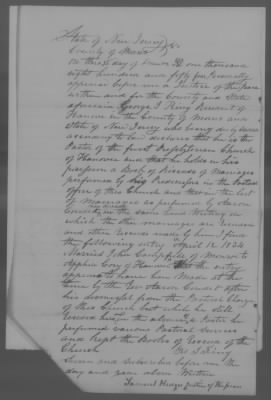 State of New Jersey
County of Morris } ss.
On this day of one thousand
eight hundred and fifty five Personally
appeared before me a Justice of the peace
within and for the County and State
aforesaid George I King Resident of
Hanover in the County of Morris and
State of New Jersey who being duly sworn
according to law declares that he is the
Pastor of the first Presbyterian Church
of Hanover and that he holds in his
possession a Book of Records of Marriages
performed by his Predecessors in the Pastoral
office of this Church and among the list
of marriages as performed by Aaron
Condict in the same hand Writing in
which the other marriages are
and other records made by him I find
the following entry April 12 1824
Married John Campfield of to
Cory of Hanover that the entry
appears to have been made at the
time by the Rev Aaron Condict after
his dismissal from the Pastoral Charge
of this Church but which he still
performed various Pastoral Services
and kept the Books of Record of the
Church Geo I King
Sworn and Subscribed before me the
day and year above Written
Samuel Justice of the peace